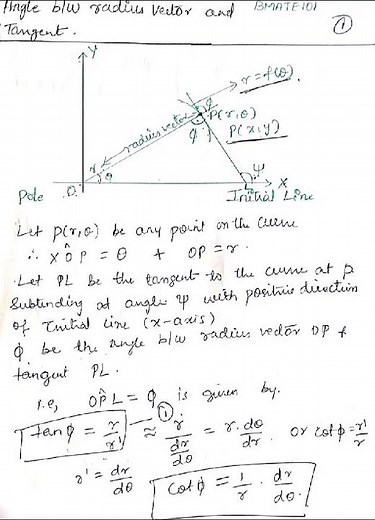 Angle b/w radius vector and BMATE101
Tangent. ①
Y
r = f(θ).
φ
P(r,θ)
P(x,y)
radius vector
φ
r
θ
ψ
Pole O L X
Initial Line
Let P(r,θ) be any point on the curve
∴ XÔP = θ + OP = r.
Let PL be the tangent to the curve at P
Subtending at angle ψ with positive direction
of Initial line (x-axis)
φ be the angle b/w radius vector OP &
tangent PL.
i.e, OP̂L = φ is given by.
tanφ = r/r' — ① ≈ r/(dr/dθ) = r. dθ/dr. or cotφ = r'/r
r' = dr/dθ
cotφ = 1/r . dr/dθ.